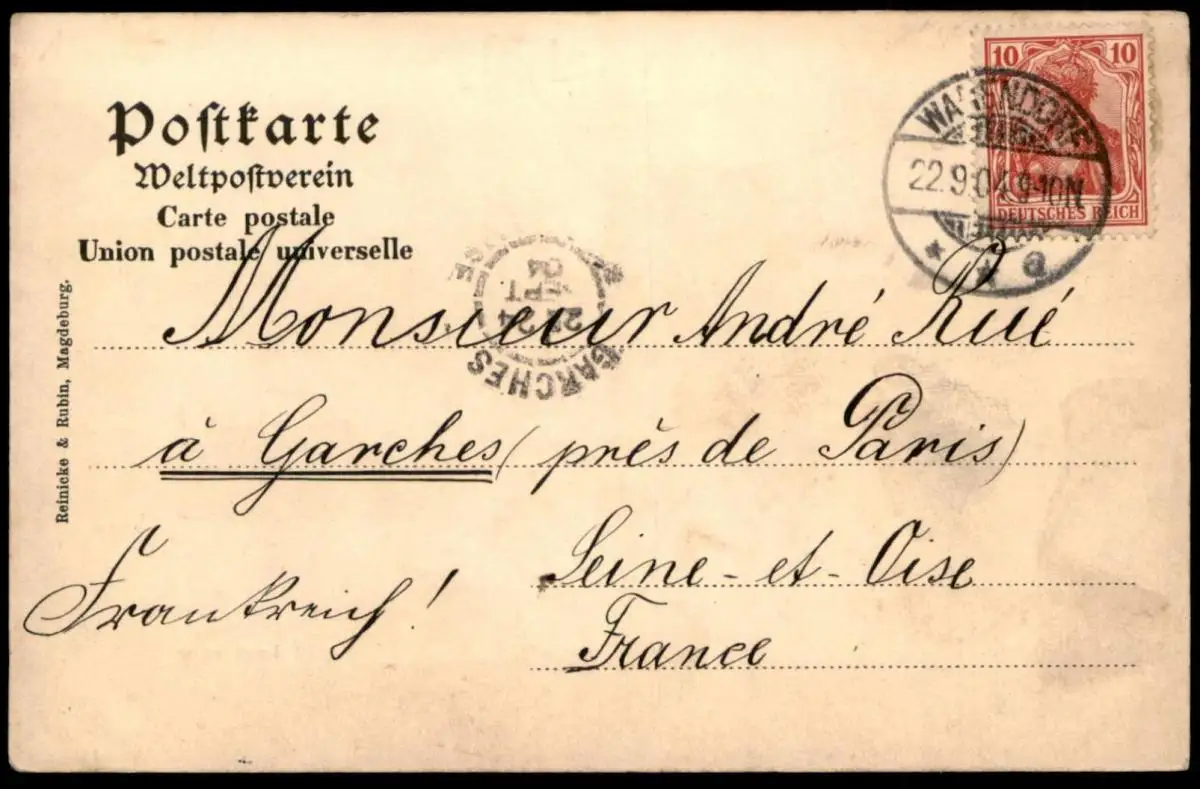 Postkarte
Weltpostverein
Carte postale
Union postale universelle
10 10
DEUTSCHES REICH
WARENDORF
22.9.04.9-10N.
* * a
GARCHES
24
SEPT
04
Monsieur André Rué
à Garches (près de Paris)
Seine-et-Oise
France
Frankreich!
Reinicke & Rubin, Magdeburg.